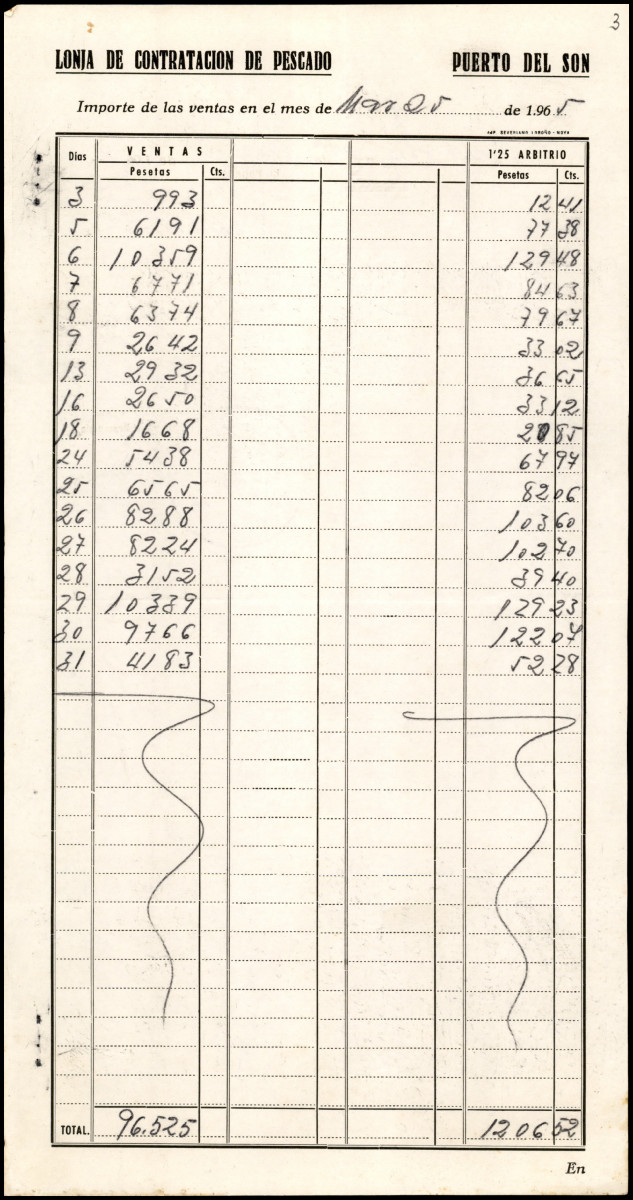 3
LONJA DE CONTRATACION DE PESCADO PUERTO DEL SON
Importe de las ventas en el mes de Marzo de 1.965
Días VENTAS 1'25 ARBITRIO
Pesetas Cts. Pesetas Cts.
3 993 12 41
5 6191 77 38
6 10359 129 48
7 6771 84 63
8 6374 79 67
9 2642 33 02
13 2932 36 65
16 2650 33 12
18 1668 20 85
24 5438 67 97
25 6565 82 06
26 8288 103 60
27 8224 102 70
28 3152 39 40
29 10339 129 23
30 9766 122 07
31 4183 52 28
TOTAL. 96.525 1206 52
En